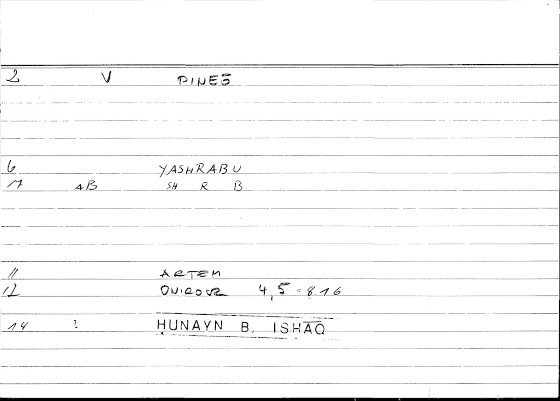 2 V PINES
6 YASHRABU
17 AB SH R B
11 ARTEM
12 ONIROCR 4,5 = 8.16
14 ? HUNAYN B. ISHĀQ